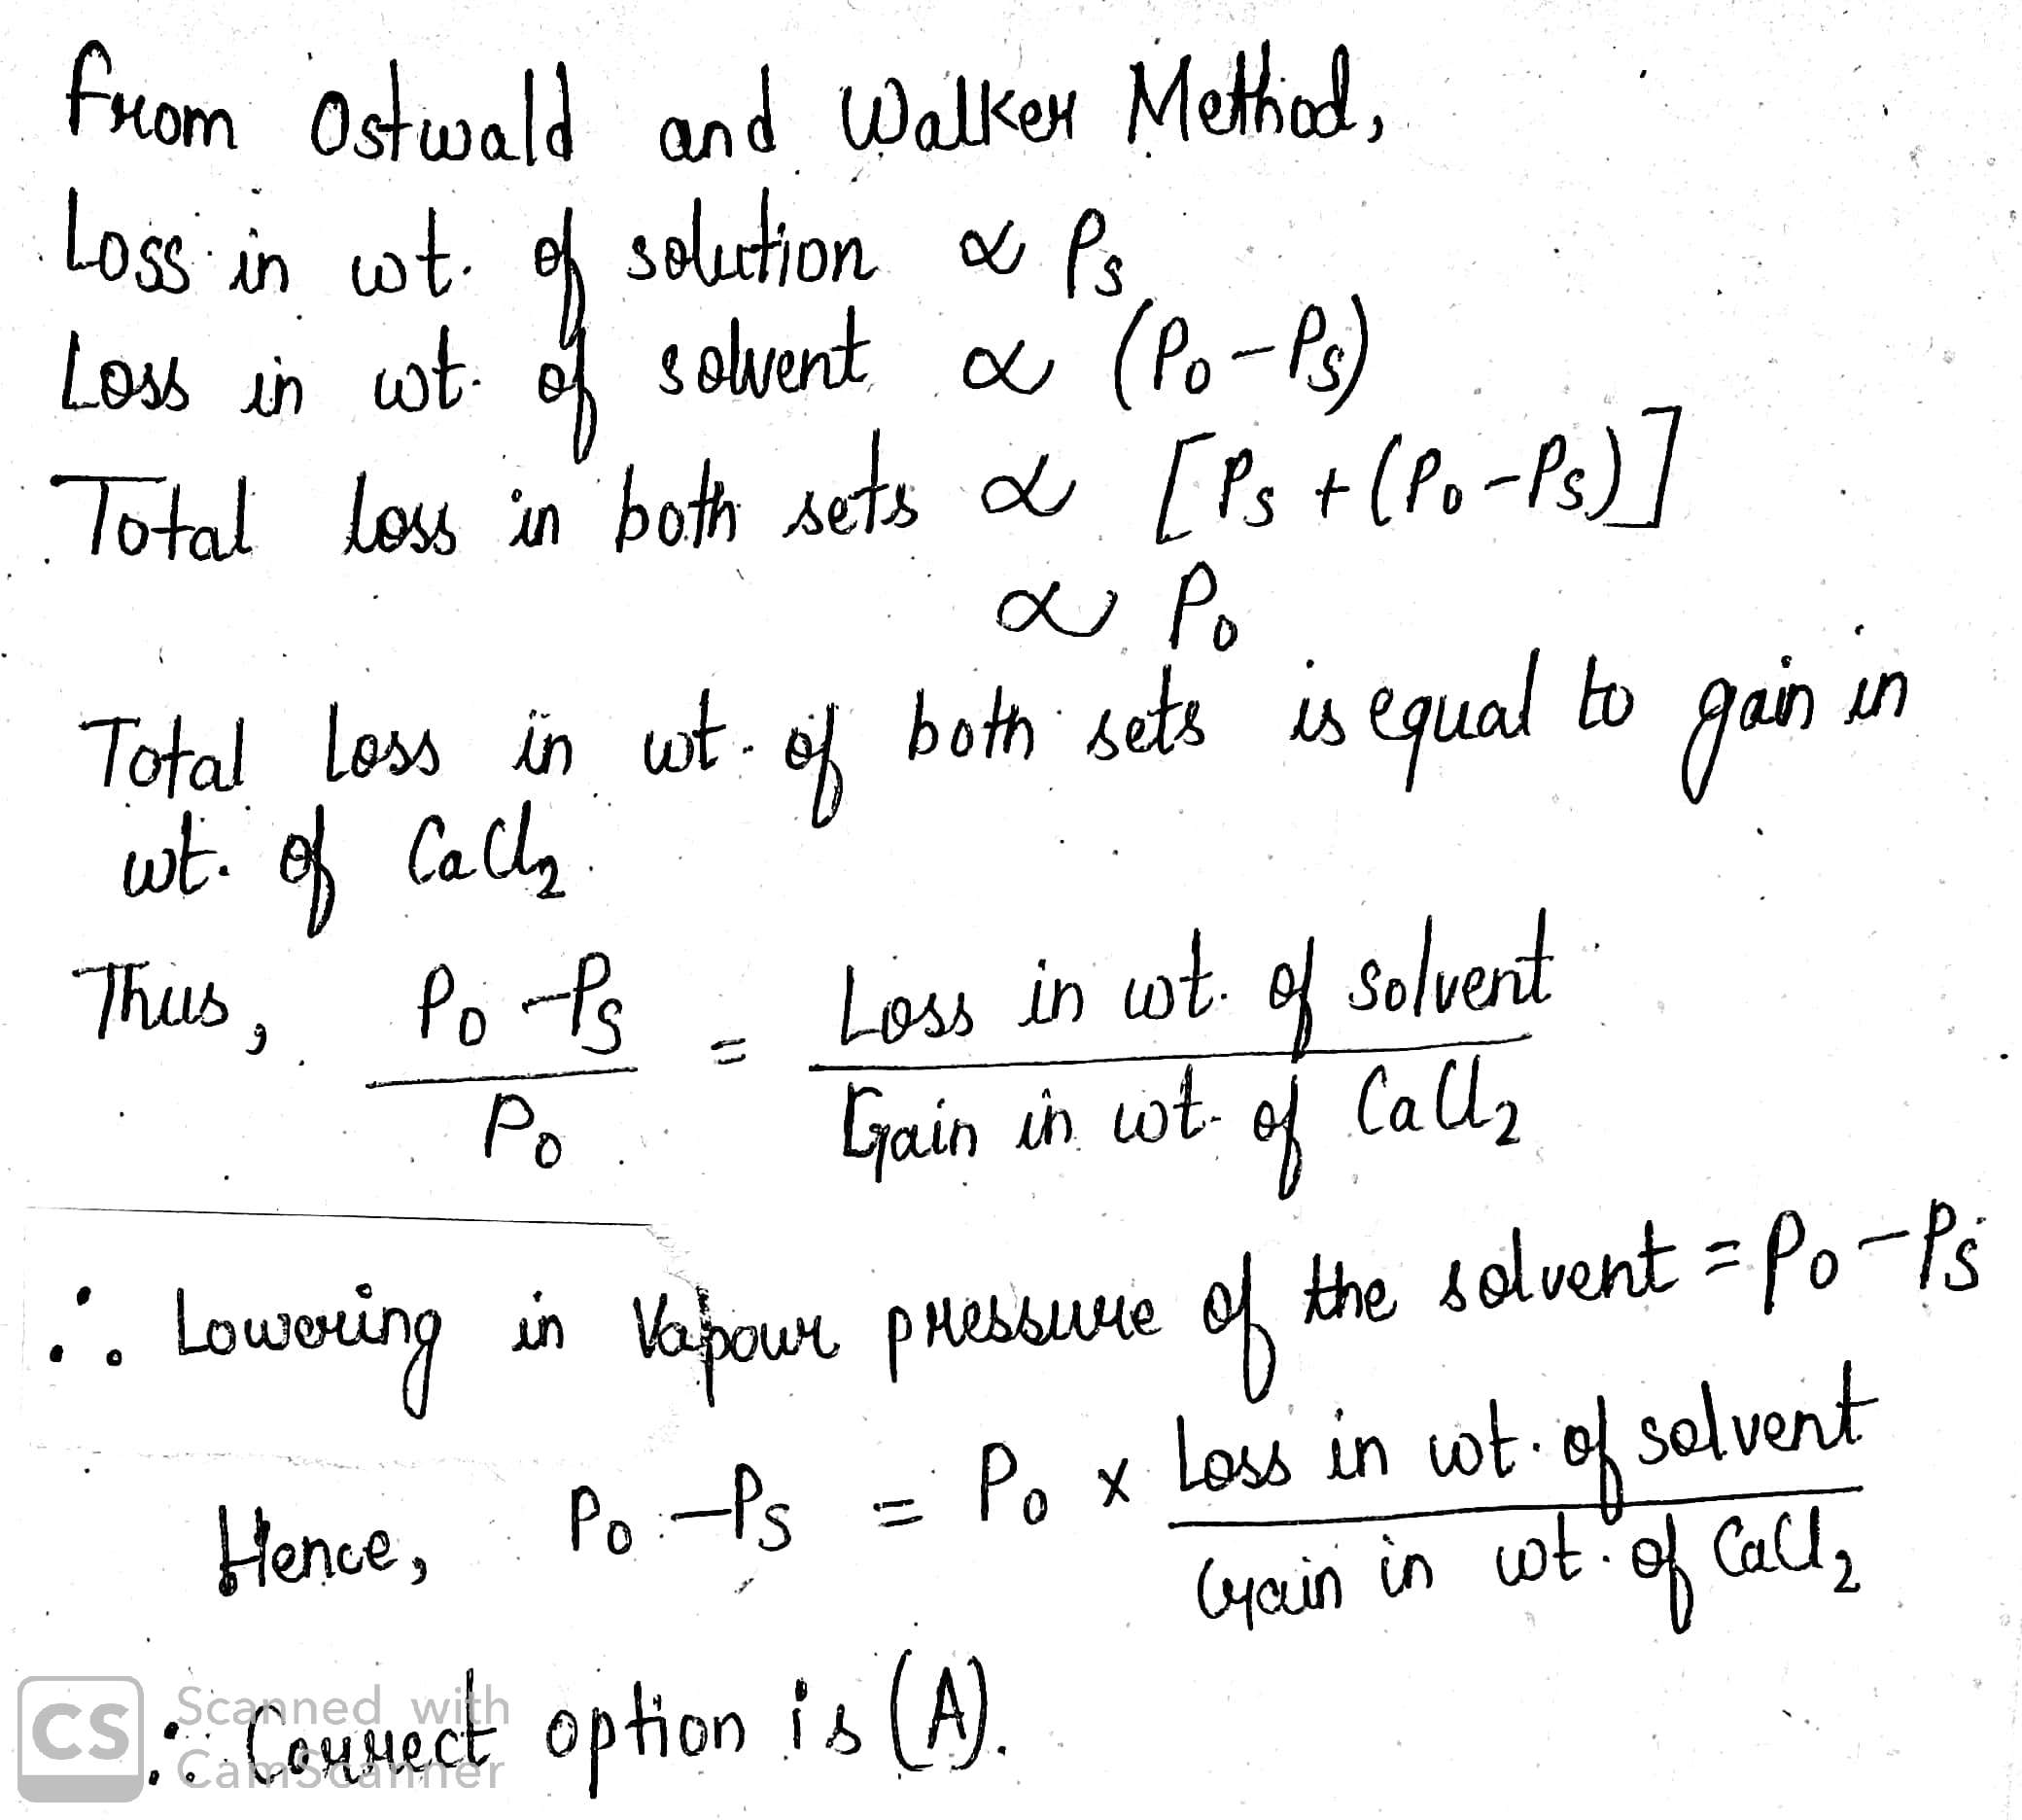 From Ostwald and Walker Method,
Loss in wt. of solution ∝ Ps
Loss in wt. of solvent ∝ (Po-Ps)
Total loss in both sets ∝ [Ps+(Po-Ps)]
∝ Po
Total loss in wt. of both sets is equal to gain in
wt. of CaCl₂.
Thus, Po-Ps = Loss in wt. of solvent
Po Gain in wt. of CaCl₂
∴ Lowering in Vapour pressure of the solvent = Po-Ps
Hence, Po-Ps = Po x Loss in wt. of solvent
Gain in wt. of CaCl₂
∴ Correct option is (A).
CS Scanned with
CamScanner